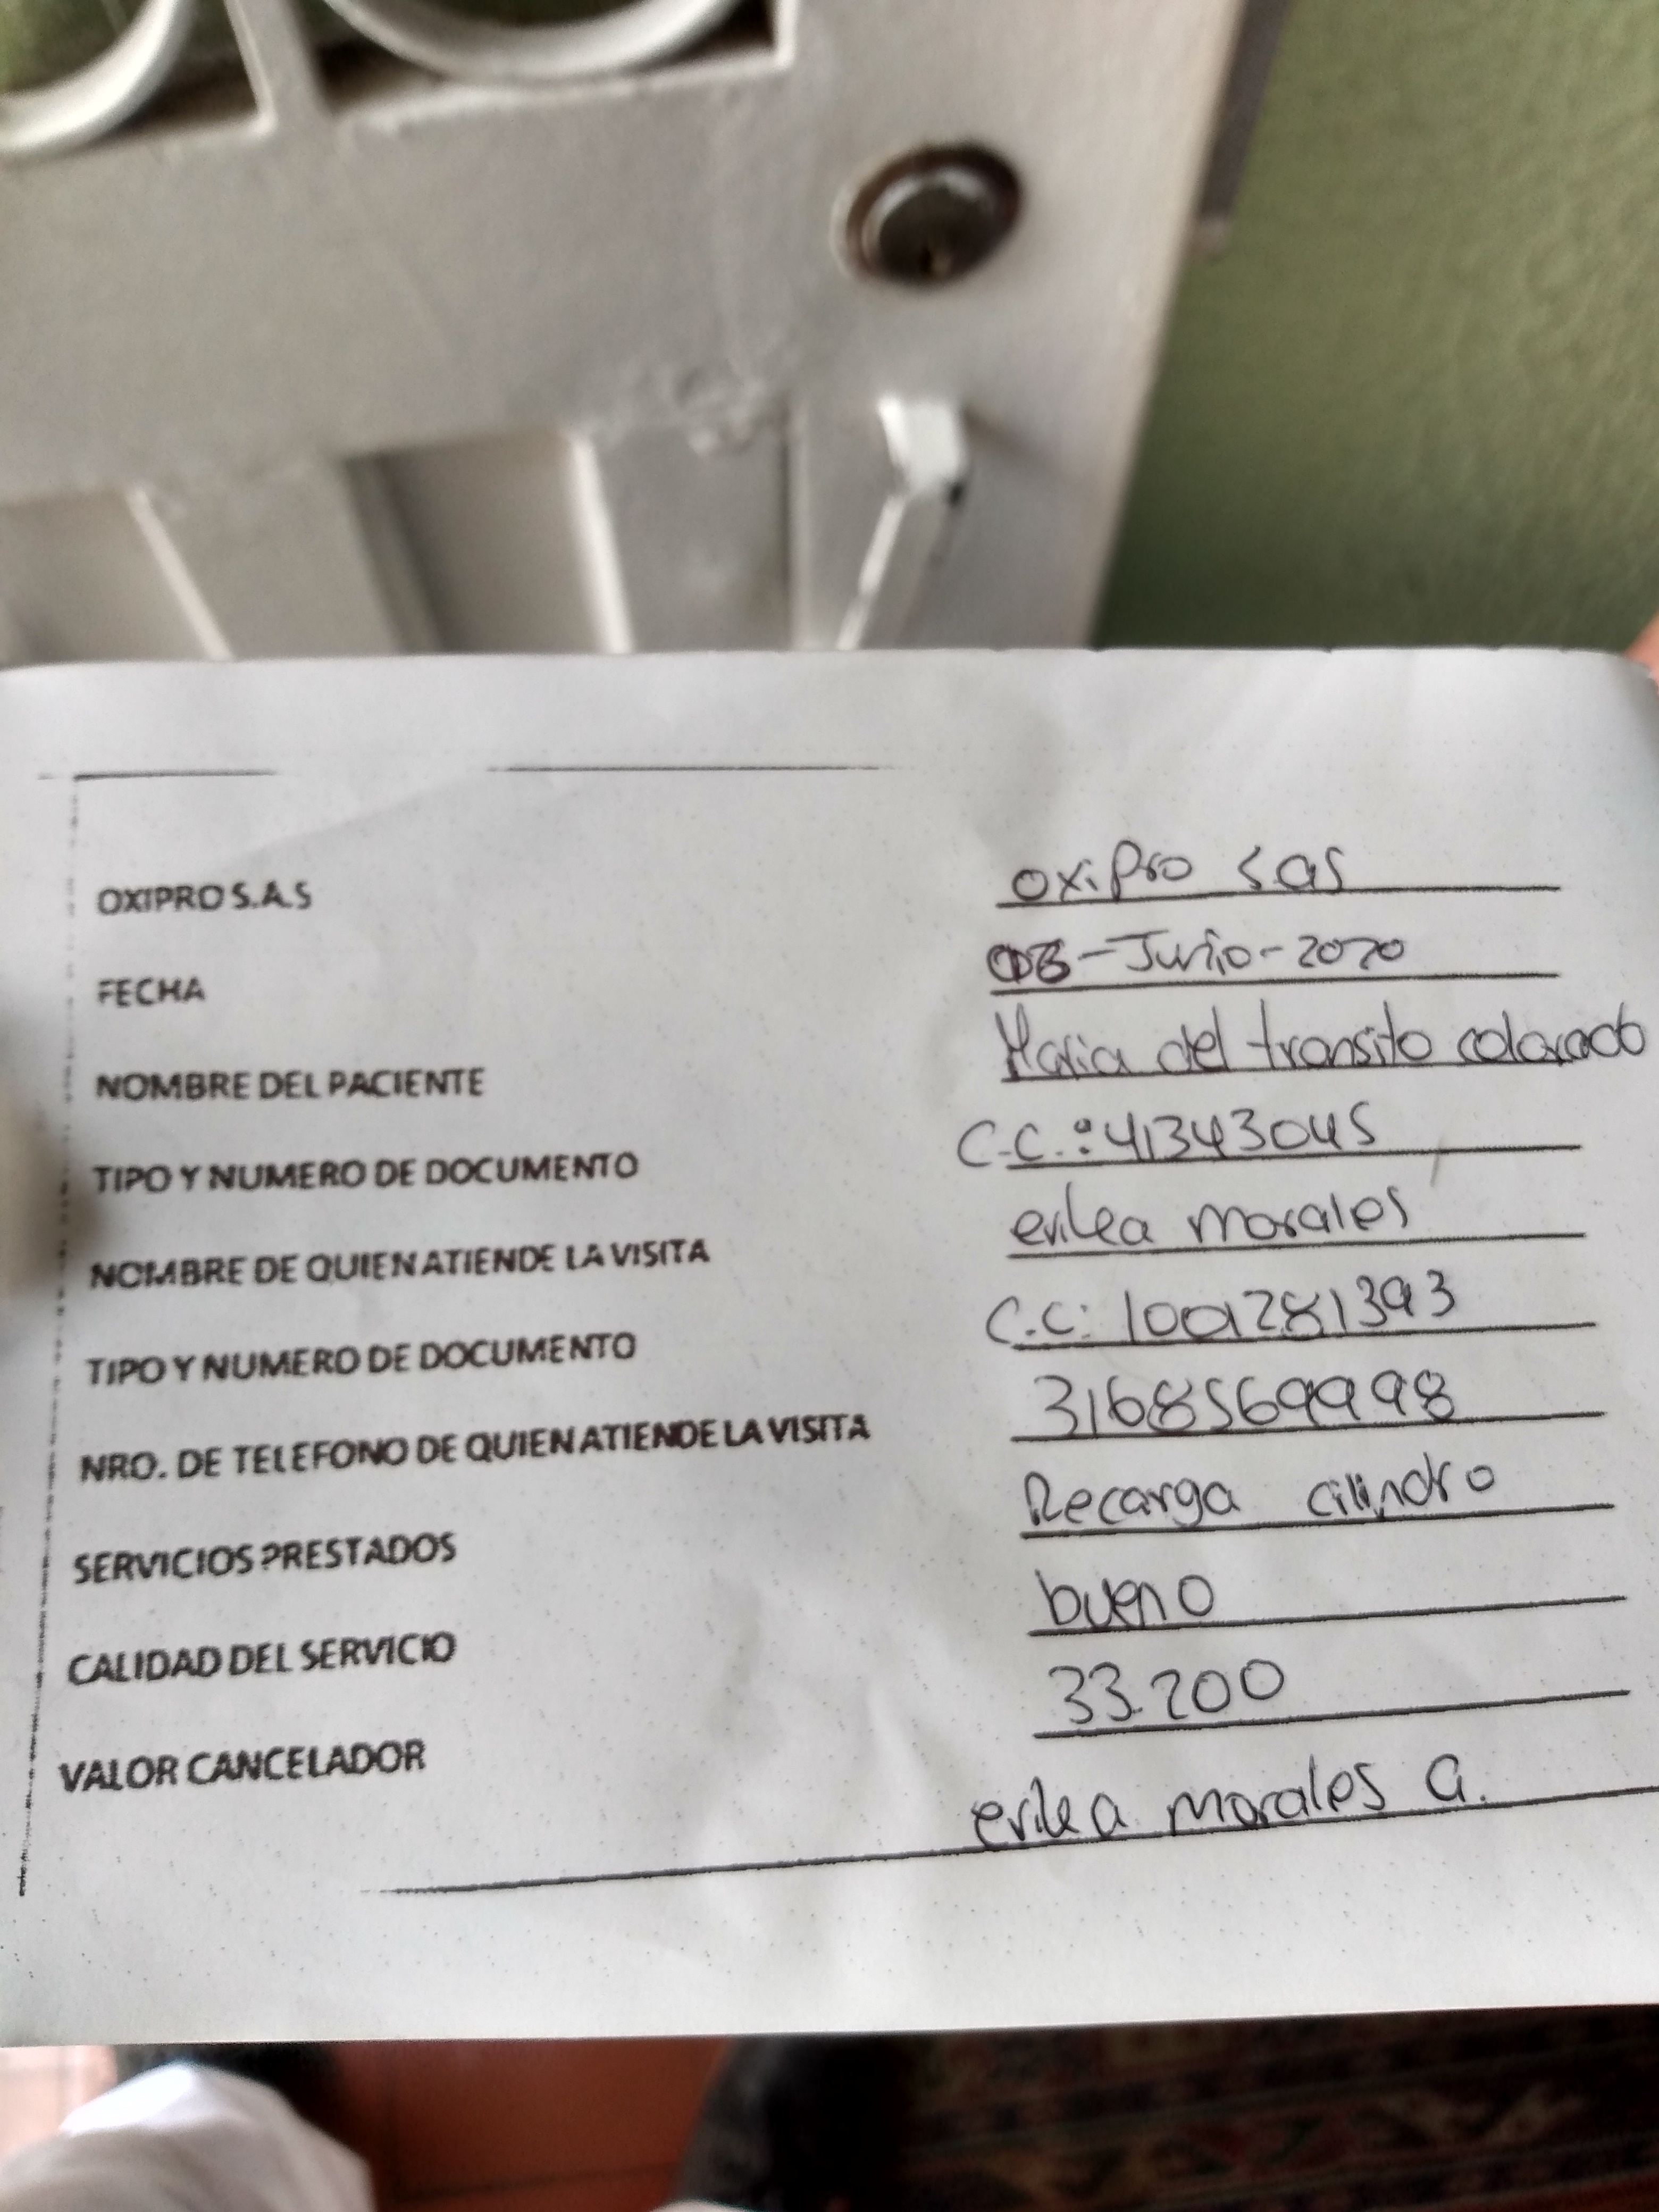 OXIPRO S.A.S oxipro sas
FECHA -Junio-2020
NOMBRE DEL PACIENTE Maria del transito colorado
TIPO Y NUMERO DE DOCUMENTO C.C.: 41343045
NOMBRE DE QUIEN ATIENDE LA VISITA erikea morales
TIPO Y NUMERO DE DOCUMENTO C.C: 1001281393
NRO. DE TELEFONO DE QUIEN ATIENDE LA VISITA 3168569998
SERVICIOS PRESTADOS Recarga cilindro
CALIDAD DEL SERVICIO bueno
VALOR CANCELADOR 33.200
morales a.